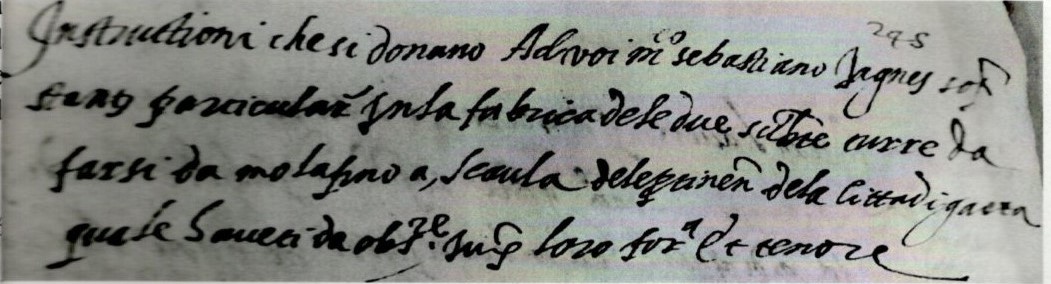 295
Instructioni che si donano Ad voi m.co sebastiano
stante particulare In la fabrica dele due turre da
farsi da mola fino a, scaula dele ptinen dela Citta di gaeta
quale haveti da obs.re loro for.a Et tenore